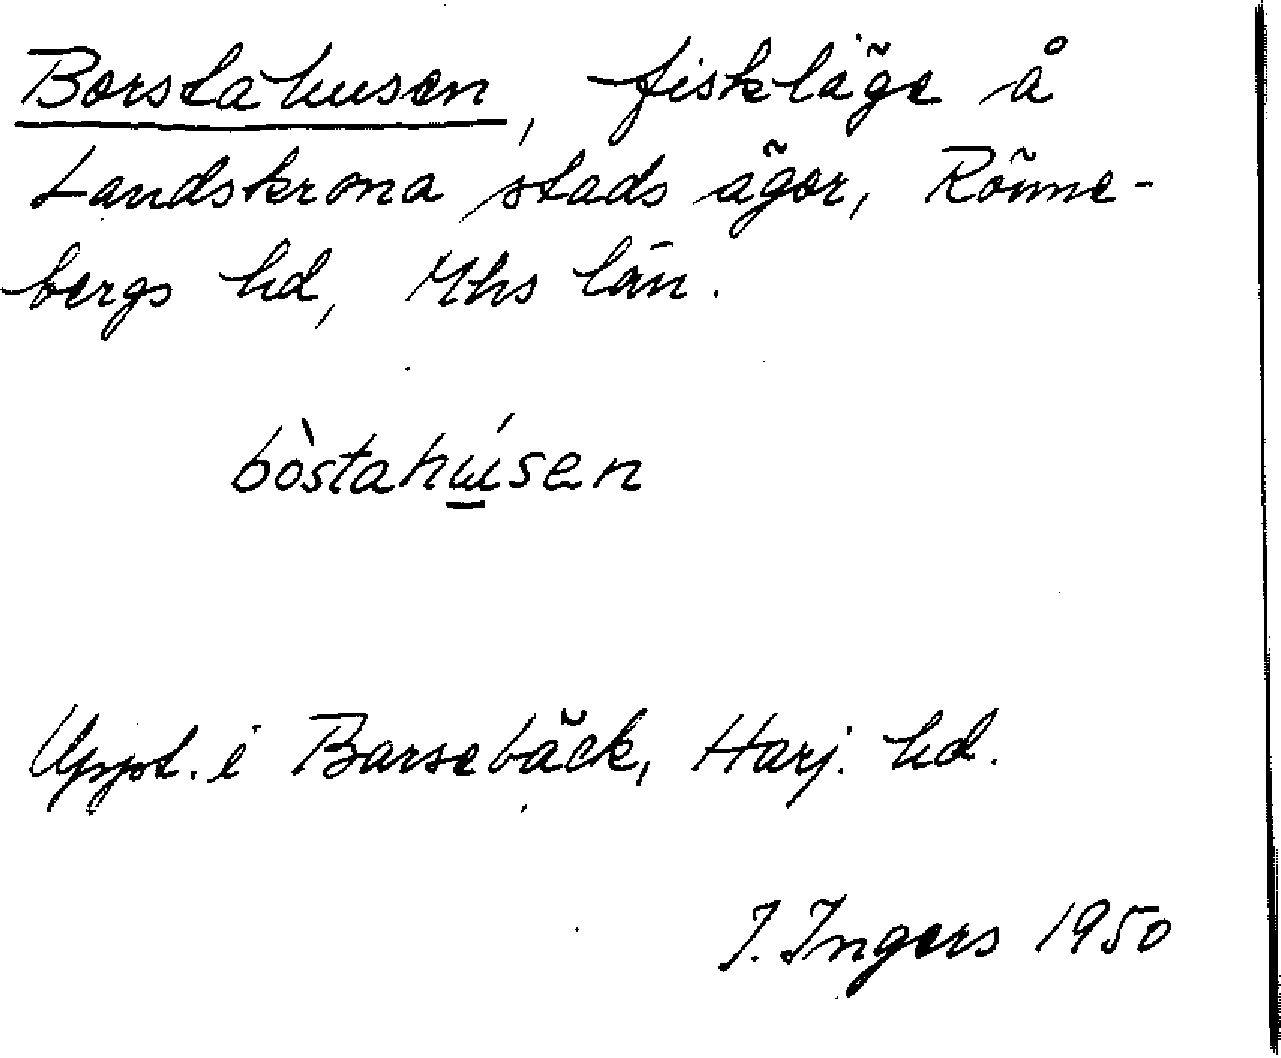 Borstahusen, fiskläge å
Landskrona stads ägor, Rönne-
bergs hd, Mhs län.
bòstahú̲sen
Uppt. i Barsebäck, Harj. hd.
I. Ingers 1950